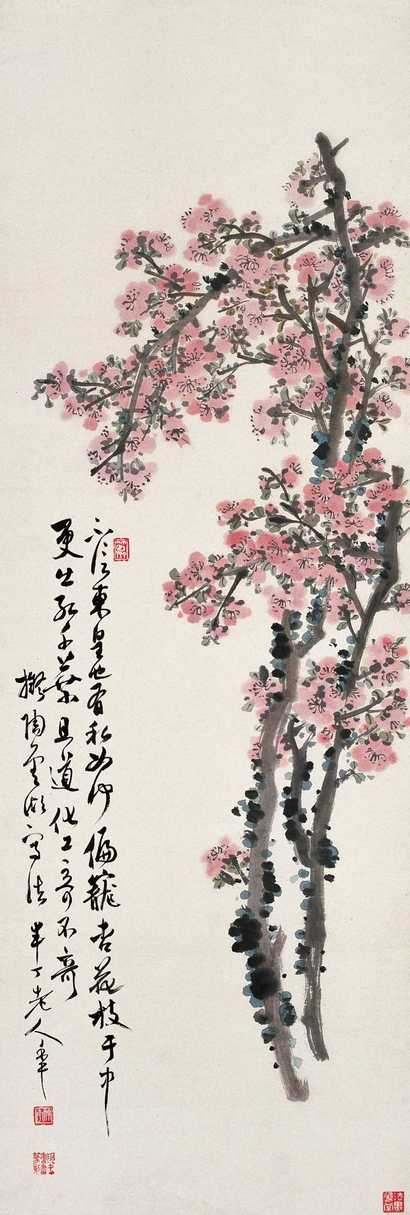 不信東皇也有私如何偏寵杏花枝于中
更出紅千葉且道化工奇不奇
撫陶雲湖寫法半丁老人年